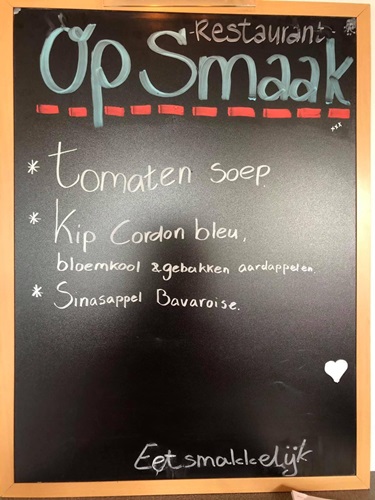 -Restaurant-
Op Smaak
xxx
* tomaten soep.
* Kip Cordon bleu,
bloemkool & gebakken aardappelen.
* Sinasappel Bavaroise.
Eet smakkelijk